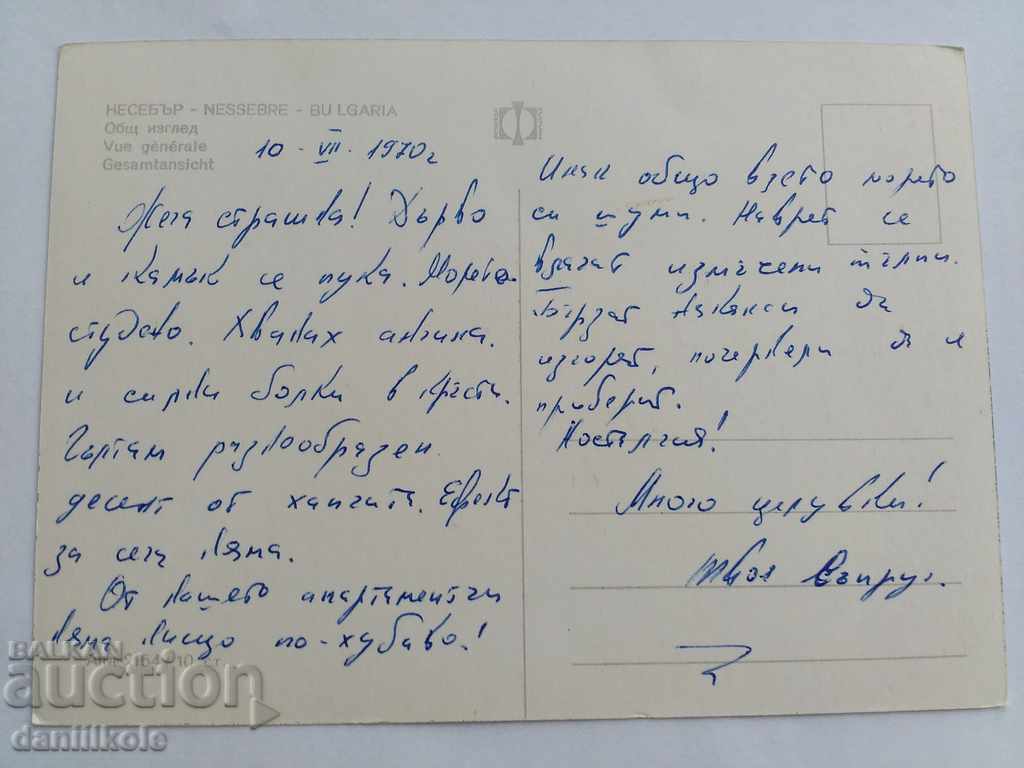 НЕСЕБЪР - NESSEBRE - BULGARIA
Общ изглед
Vue générale
Gesamtansicht
10 - VII - 1970 г
Жега страшна! Дърво
и камък се пука. Морето
студено. Хванах ангина
и силни болки в кръста.
Гълтам разнообразен
десент от хапчета. Ефект
за сега няма.
От нашето апартаментче
няма нищо по-хубаво!
Инак общо взето морето
си шуми. Навред се
влачат измъчени тълпи.
Бързат някакси да
изгорят, почернели да се
приберат.
Носталгия!
Много целувки!
твоя Съпруг.
BALKAN
auction
daniilkole